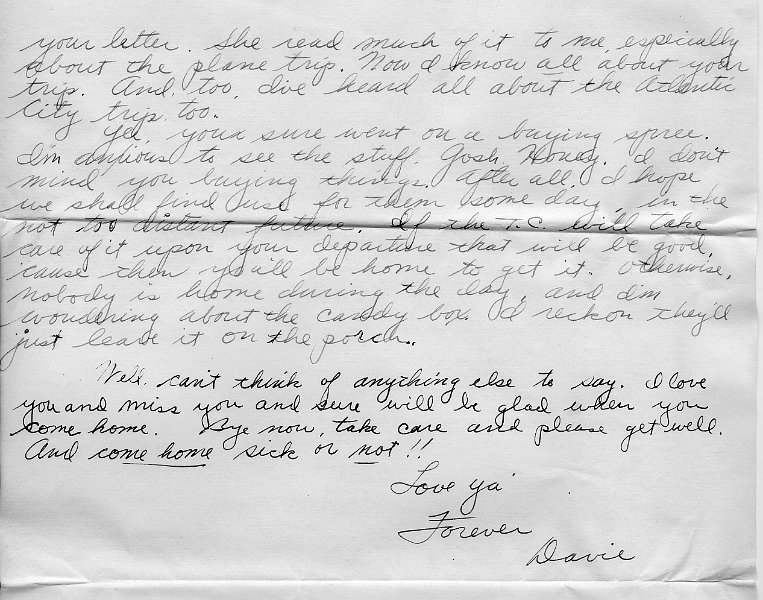 your letter. She read much of it to me, especially
about the plane trip. Now I know all about your
trip. And, too, I've heard all about the Atlantic
City trip, too.
Yea, you sure went on a buying spree.
I'm anxious to see the stuff. Gosh, Honey, I don't
mind you buying things. After all, I hope
we shall find use for them some day, in the
not too distant future. If the T.C. will take
care of it upon your departure that will be good,
'cause then you'll be home to get it. Otherwise,
nobody is home during the day, and I'm
wondering about the candy box. I reckon they'll
just leave it on the porch.
Well, can't think of anything else to say. I love
you and miss you and sure will be glad when you
come home. Bye now, take care and please get well.
And come home sick or not!!
Love ya'
Forever
Davie